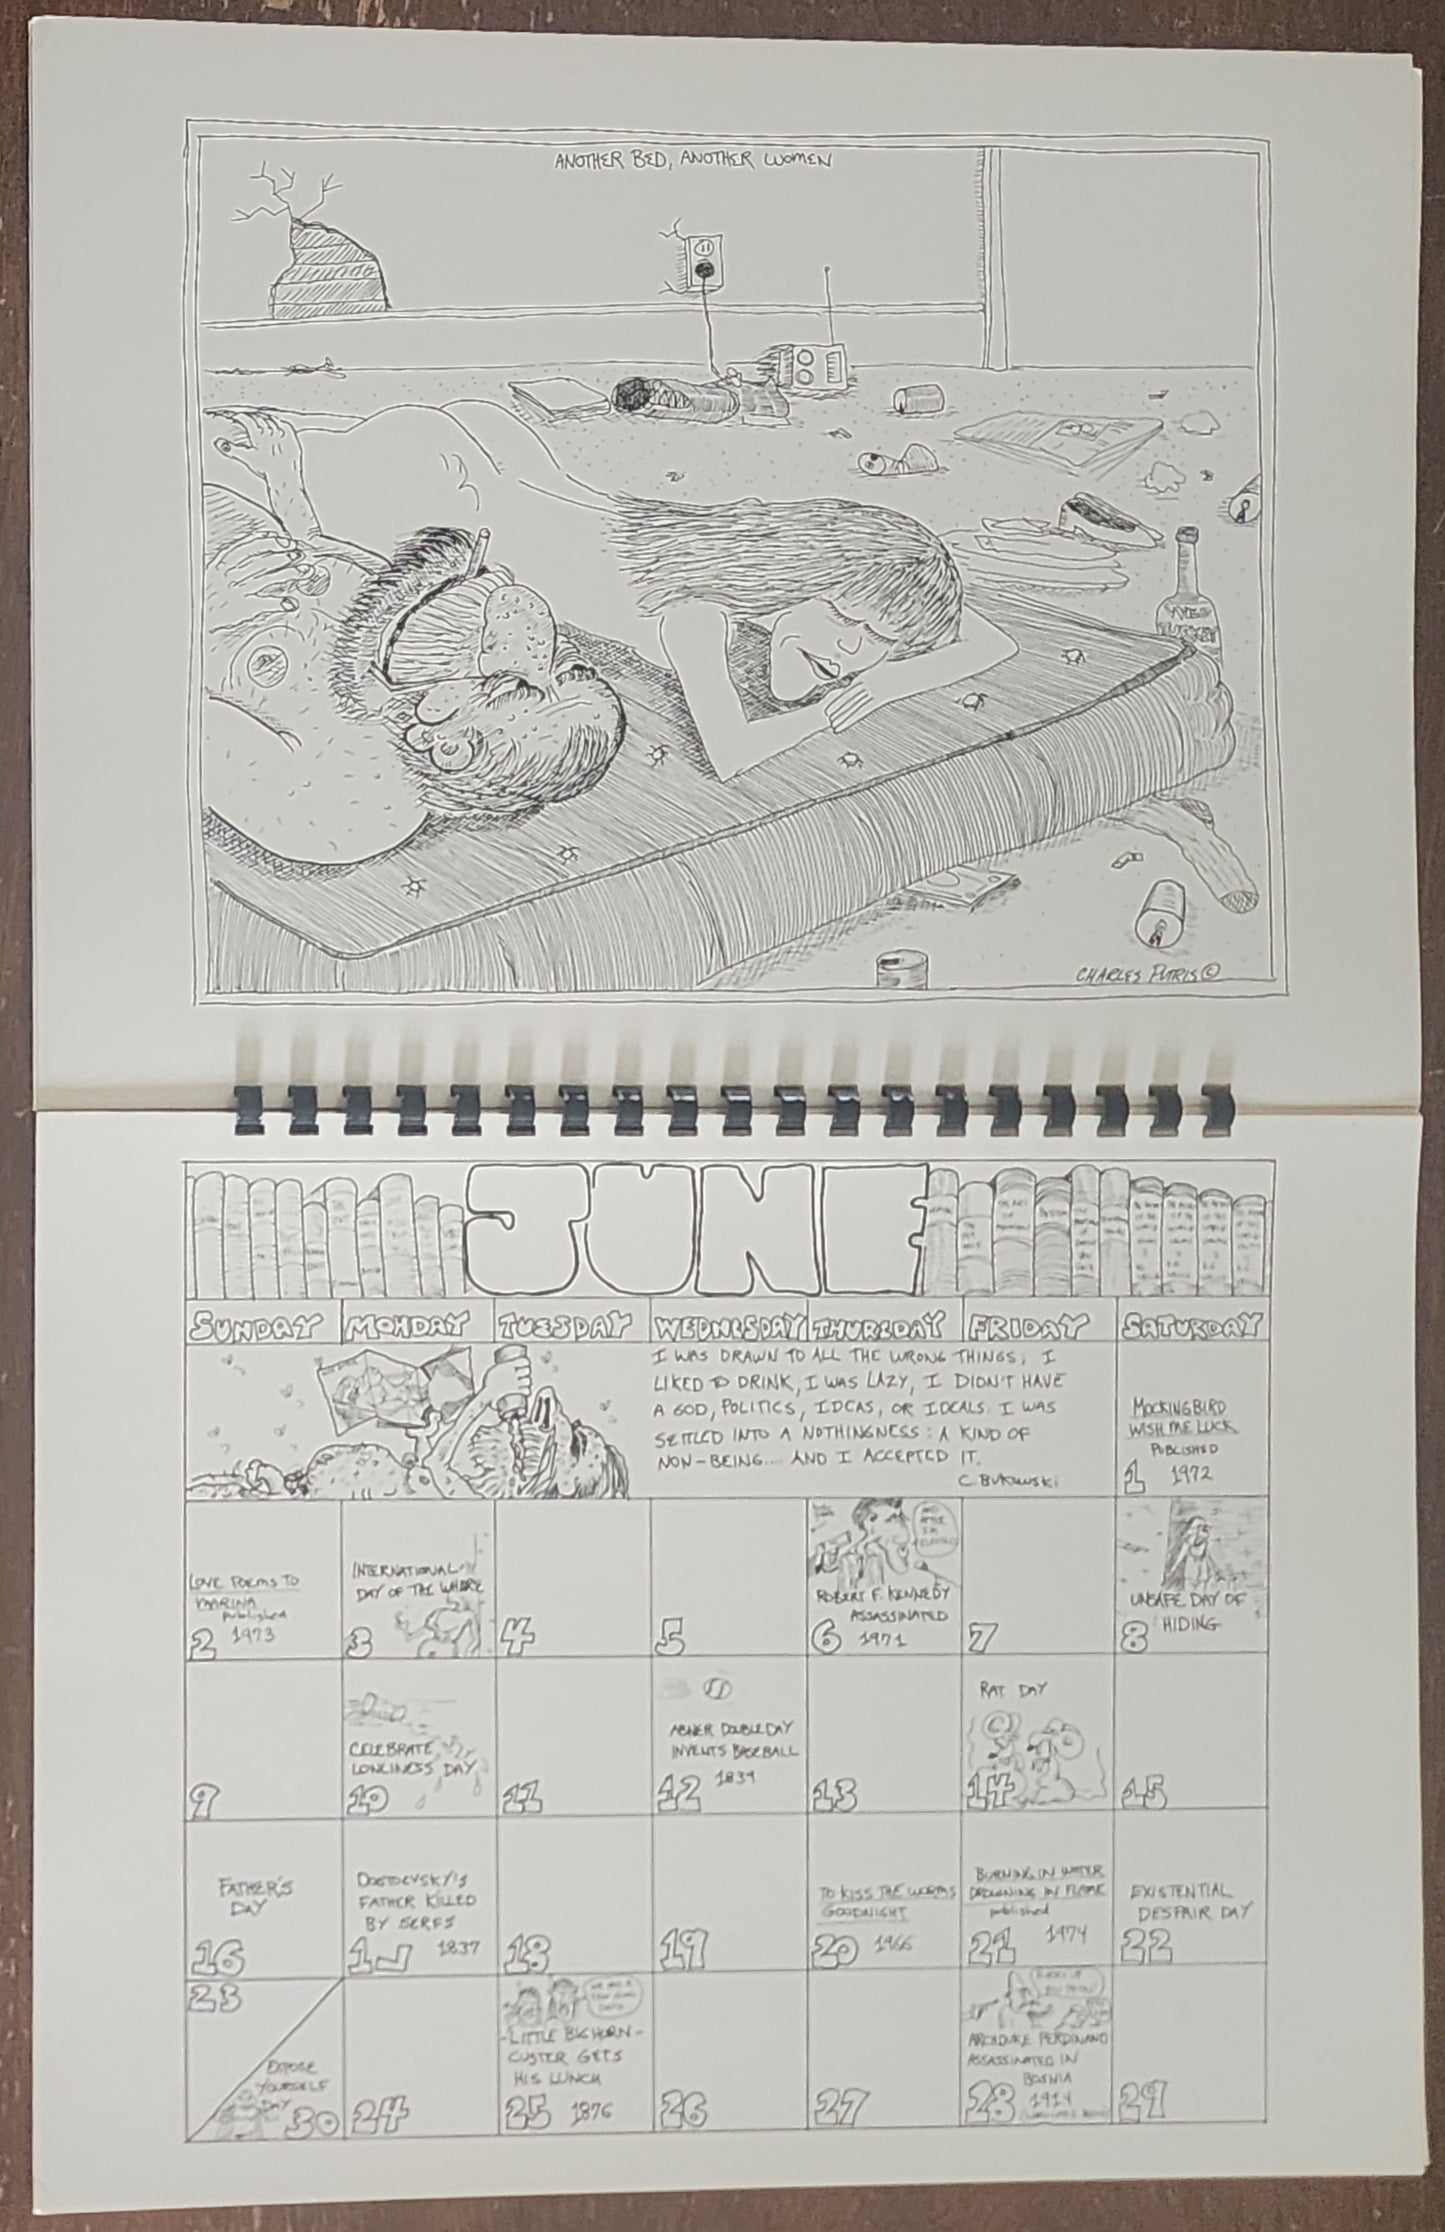 ANOTHER BED, ANOTHER WOMEN
WILD
TURKEY
CHARLES PUTRIS ©
JUNE
SUNDAY MONDAY TUESDAY WEDNESDAY THURSDAY FRIDAY SATURDAY
I WAS DRAWN TO ALL THE WRONG THINGS; I
LIKED TO DRINK, I WAS LAZY, I DIDN'T HAVE
A GOD, POLITICS, IDEAS, OR IDEALS. I WAS
SETTLED INTO A NOTHINGNESS: A KIND OF
NON-BEING... AND I ACCEPTED IT.
C. BUKOWSKI
MOCKINGBIRD
WISH ME LUCK
PUBLISHED
1 1972
LOVE POEMS TO
MARINA
published
2 1973
INTERNATIONAL
DAY OF THE WHORE
3
4
5
ROBERT F. KENNEDY
ASSASSINATED
6 1971
7
UNSAFE DAY OF
HIDING
8
9
CELEBRATE
LONLINESS DAY
10
11
ABNER DOUBLEDAY
INVENTS BASEBALL
12 1839
13
RAT DAY
14
15
FATHER'S
DAY
16
DOSTOEVSKY'S
FATHER KILLED
BY SERFS
17 1837
18
19
TO KISS THE WORMS
GOODNIGHT
20 1966
BURNING IN WATER
DROWNING IN FLAME
published
21 1974
EXISTENTIAL
DESPAIR DAY
22
23
EXPOSE
YOURSELF
DAY
30
24
-LITTLE BIGHORN-
CUSTER GETS
HIS LUNCH
25 1876
26
27
ARCHDUKE FERDINAND
ASSASSINATED IN
BOSNIA
28 1914
29